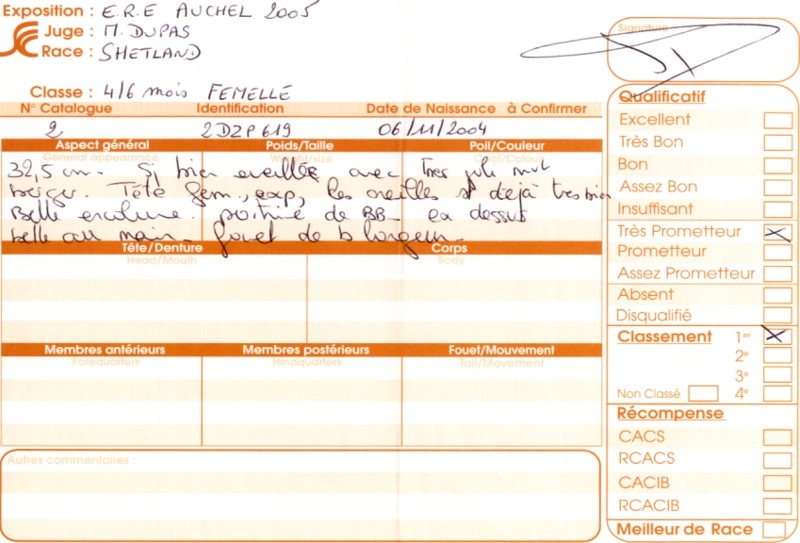 Exposition : E.R.E AUCHEL 2005
Juge : M. DUPAS
Race : SHETLAND
Classe : 4/6 mois FEMELLE
Signature :
N° Catalogue Identification Date de Naissance à Confirmer
2 2DZP619 06/11/2004
Aspect général Poids/Taille Poil/Couleur
General appearance Weight/size Coat/Colour
32,5 cm. Si bien eveillée avec Tres joli
berger. Tête fem., exp, les oreilles st dejà tres bien
Belle encolure. poitrine de BB_ dessus
belle main. fouet de b longeur
Tête/Denture Corps
Head/Mouth Body
Membres antérieurs Membres postérieurs Fouet/Mouvement
Forequarters Hindquarters Tail/Movement
Autres commentaires :
Qualificatif
Excellent
Très Bon
Bon
Assez Bon
Insuffisant
Très Prometteur X
Prometteur
Assez Prometteur
Absent
Disqualifié
Classement 1er X
2e
3e
Non Classé 4e
Récompense
CACS
RCACS
CACIB
RCACIB
Meilleur de Race